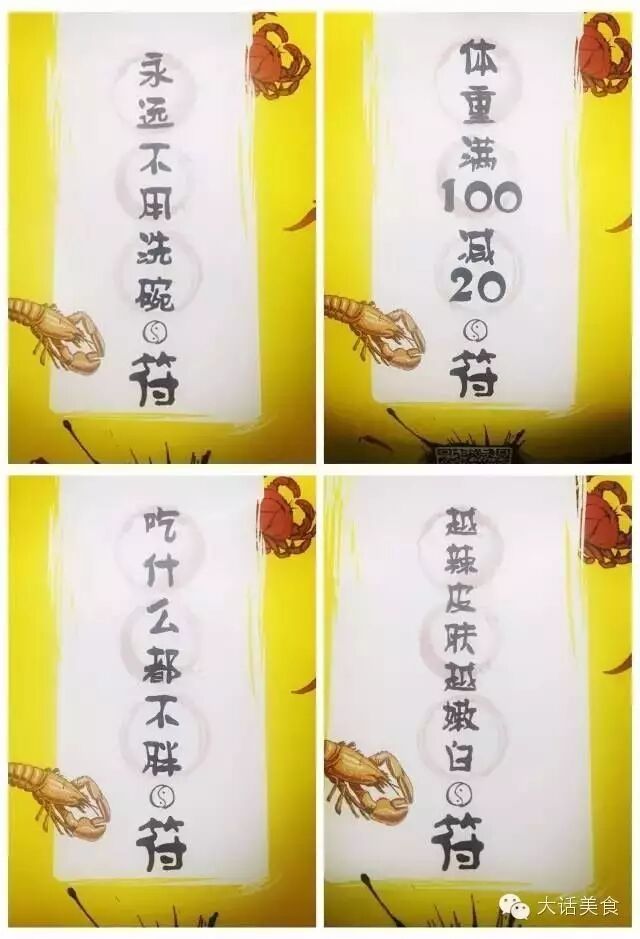 永远不用洗碗
符
体重满100减20
符
吃什么都不胖
符
越辣皮肤越嫩白
符
大话美食